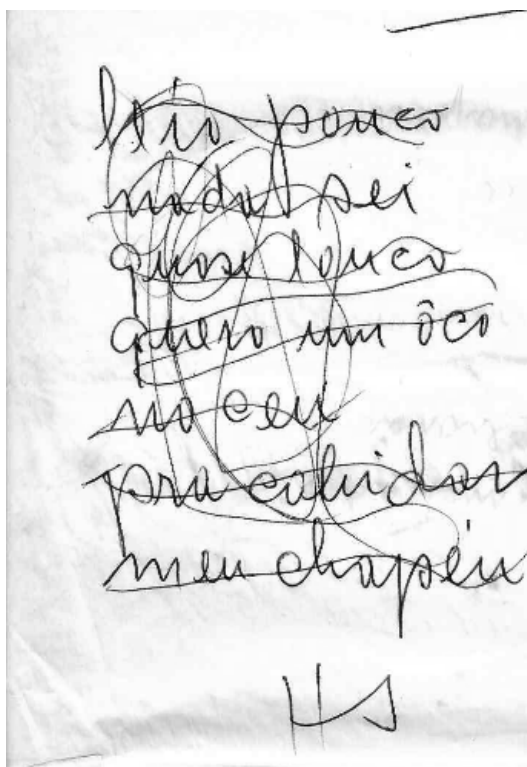 leio pouco
nada sei
quase louco
quero um ôco
no ceu
pra
meu chapéu
HS